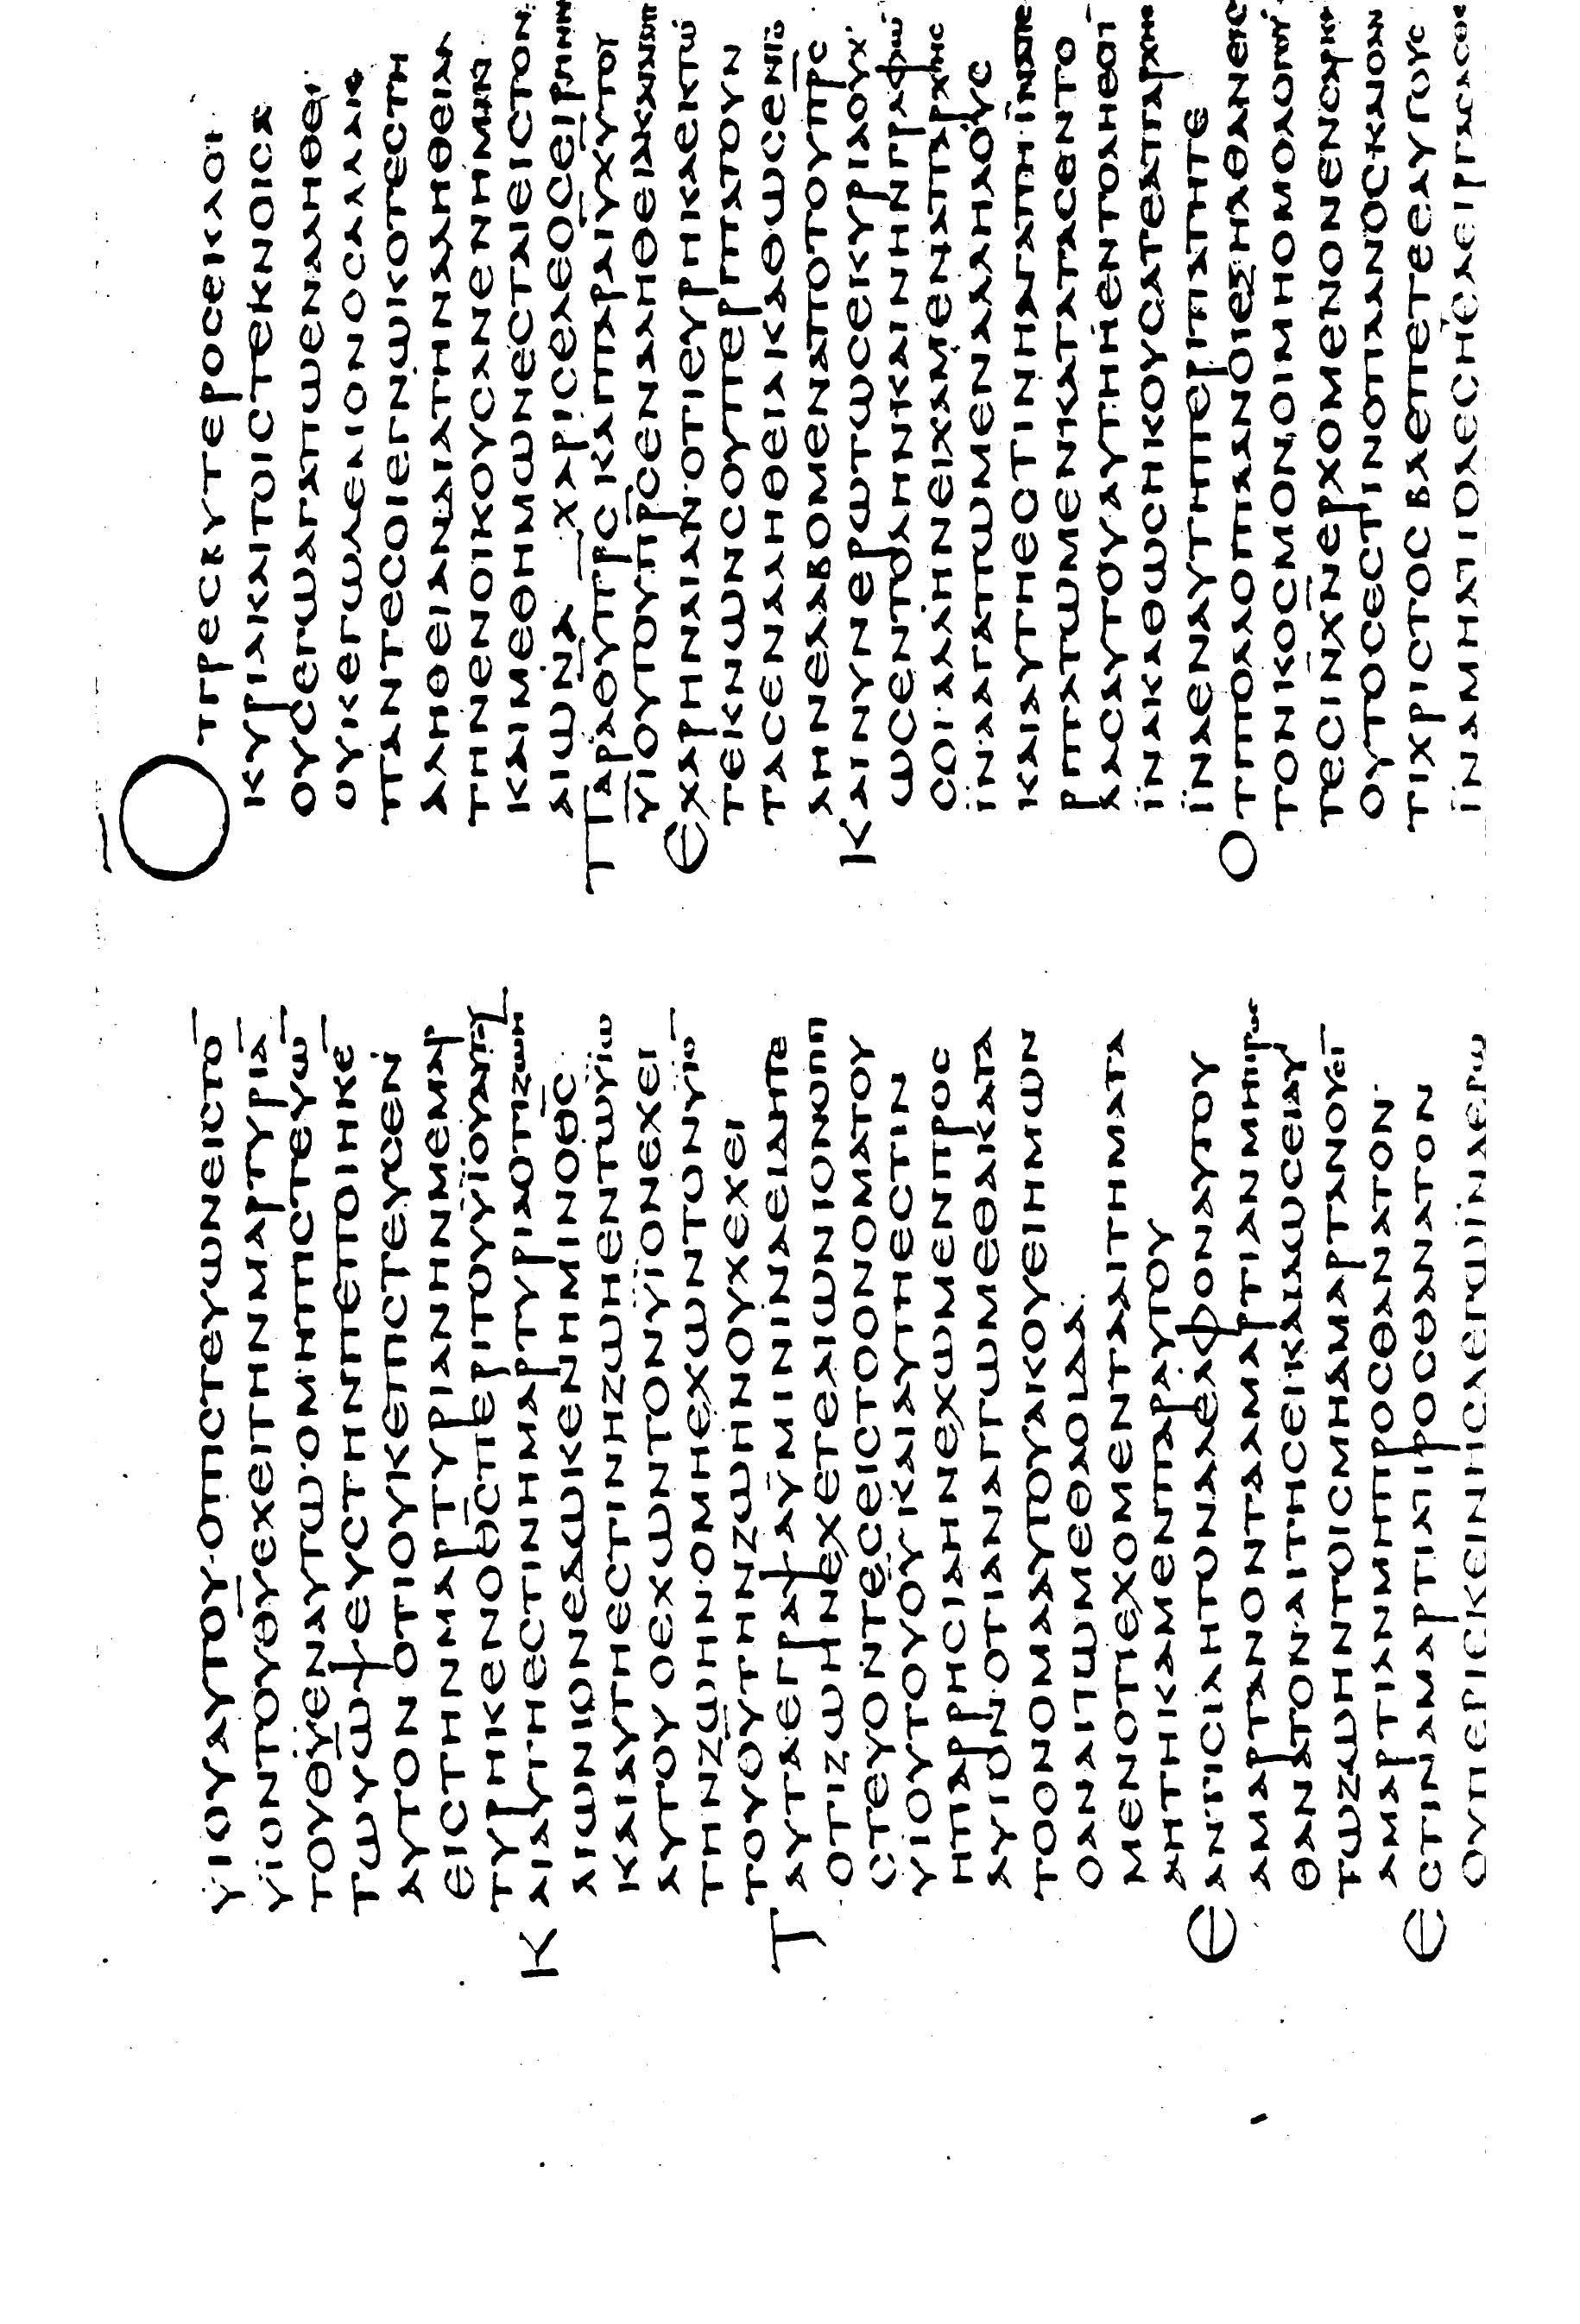 ΥΙΟΥΑΥΤΟΥ·ΟΠΙCΤΕΥΩΝΕΙCΤΟ̅
ΥΙΟΝΤΟΥΘ̅Υ̅ΕΧΕΙΤΗΝΜΑΡΤΥΡΙΑ̅
ΤΟΥΘ̅Υ̅ΕΝΑΥΤΩ·ΟΜΗΠΙCΤΕΥΩ̅
ΤΩΥΩΨΕΥCΤΗΝΠΕΠΟΙΗΚΕ̅
ΑΥΤΟΝΟΤΙΟΥΚΕΠΙCΤΕΥCΕΝ
ΕΙCΤΗΝΜΑΡΤΥΡΙΑΝΗΝΜΕΜΑΡ
ΤΥΡΗΚΕΝΟΘ̅C̅ΠΕΡΙΤΟΥΥΪΟΥΑΥΤΟΥ
ΚΑΙΑΥΤΗΕCΤΙΝΗΜΑΡΤΥΡΙΑΟΤΙΖΩΗΝ
ΑΙΩΝΙΟΝΕΔΩΚΕΝΗΜΙΝΟΘ̅C̅
ΚΑΙΑΥΤΗΕCΤΙΝΗΖΩΗΕΝΤΩΥΪΩ
ΑΥΤΟΥΟΕΧΩΝΤΟΝΥΪΟΝΕΧΕΙ
ΤΗΝΖΩΗΝ·ΟΜΗΕΧΩΝΤΟΝΥΙΟ̅
ΤΟΥΘ̅Υ̅ΤΗΝΖΩΗΝΟΥΧΕΧΕΙ
ΤΑΥΤΑΕΓΡΑΨΑΫΜΙΝΙΝΑΕΙΔΗΤΕ
ΟΤΙΖΩΗΝΕΧΕΤΕΑΙΩΝΙΟΝΚΟΙΠΙ
CΤΕΥΟΝΤΕCΕΙCΤΟΟΝΟΜΑΤΟΥ
ΥΙΟΥΤΟΥΘ̅Υ̅ΚΑΙΑΥΤΗΕCΤΙΝ
ΗΠΑΡΡΗCΙΑΗΝΕΧΩΜΕΝΠΡΟC
ΑΥΤΟΝ·ΟΤΙΑΝΑΙΤΩΜΕΘΑΚΑΤΑ
ΤΟΟΝΟΜΑΑΥΤΟΥΑΚΟΥΕΙΗΜΩΝ
ΟΑΝΑΙΤΩΜΕΘΑΟΙΔΑ
ΜΕΝΟΤΙΕΧΟΜΕΝΤΑΑΙΤΗΜΑΤΑ
ΑΗΤΗΚΑΜΕΝΠΑΡΑΥΤΟΥ
ΕΑΝΤΙCΙΔΗΤΟΝΑΔΕΛΦΟΝΑΥΤΟΥ
ΑΜΑΡΤΑΝΟΝΤΑΑΜΑΡΤΙΑΝΜΗΠΡΟC
ΘΑΝΑΤΟΝ·ΑΙΤΗCΕΙΚΑΙΔΩCΕΙΑΥ
ΤΩΖΩΗΝΤΟΙCΜΗΑΜΑΡΤΑΝΟΥCΙ
ΑΜΑΡΤΙΑΝΜΗΠΡΟCΘΑΝΑΤΟΝ·
ΕCΤΙΝΑΜΑΡΤΙΑΠΡΟCΘΑΝΑΤΟΝ
ΟΥΠΕΡΙΕΚΕΙΝΗCΛΕΓΩΪΝΑΕΡΩ
ΟΠΡΕCΒΥΤΕΡΟCΕΚΛΕ
ΚΥΡΙΑΚΑΙΤΟΙCΤΕΚΝΟΙCΑ
ΟΥCΕΓΩΑΓΑΠΩΕΝΑΛΗΘΕΙ
ΟΥΚΕΓΩΔΕΜΟΝΟCΑΛΛΑΚΑΙ
ΠΑΝΤΕCΟΙΕΓΝΩΚΟΤΕCΤΗ
ΑΛΗΘΕΙΑΝΔΙΑΤΗΝΑΛΗΘΕΙΑΝ
ΤΗΝΕΝΟΙΚΟΥCΑΝΕΝΗΜΙΝ
ΚΑΙΜΕΘΗΜΩΝΕCΤΑΙΕΙCΤΟΝ
ΑΙΩΝΑ ΧΑΡΙCΕΛΕΟCΕΙΡΗΝΗ
ΠΑΡΑΘ̅Υ̅Π̅Ρ̅C̅ΚΑΙΠΑΡΑΙ̅Υ̅Χ̅Υ̅ΤΟΥ
ΥΙΟΥΤΟΥΠ̅Ρ̅C̅ΕΝΑΛΗΘΕΙΑΚΑΙΑΓΑΠΗ
ΕΧΑΡΗΝΛΙΑΝ·ΟΤΙΕΥΡΗΚΑΕΚΤΩ
ΤΕΚΝΩΝCΟΥΠΕΡΙΠΑΤΟΥΝ
ΤΑCΕΝΑΛΗΘΕΙΑΚΑΘΩCΕΝΤΟ
ΛΗΝΕΛΑΒΟΜΕΝΑΠΟΤΟΥΠ̅Ρ̅C̅
ΚΑΙΝΥΝΕΡΩΤΩCΕΚΥΡΙΑΟΥΧ
ΩCΕΝΤΟΛΗΝΚΑΙΝΗΝΓΡΑΦΩ
CΟΙ·ΑΛΛΗΝΕΙΧΑΜΕΝΑΠΑΡΧΗC
ΪΝΑΑΓΑΠΩΜΕΝΑΛΛΗΛΟΥC
ΚΑΙΑΥΤΗΕCΤΙΝΗΑΓΑΠΗ·ΪΝΑΠΕ
ΡΙΠΑΤΩΜΕΝΚΑΤΑΤΑCΕΝΤΟ
ΛΑCΑΥΤΟΥΑΥΤΗΗΕΝΤΟΛΗΕCΤΙ
ΪΝΑΚΑΘΩCΗΚΟΥCΑΤΕΑΠΑΡΧΗC
ΪΝΑΕΝΑΥΤΗΠΕΡΙΠΑΤΗΤΕ
ΟΤΙΠΟΛΛΟΙΠΛΑΝΟΙΕΞΗΛΘΑΝΕΙC
ΤΟΝΚΟCΜΟΝΟΙΜΗΟΜΟΛΟΓΟΥ
ΤΕCΙ̅Ν̅Χ̅Ν̅ΕΡΧΟΜΕΝΟΝΕΝCΑΡΚΙ
ΟΥΤΟCΕCΤΙΝΟΠΛΑΝΟCΚΑΙΟΑΝ
ΤΙΧΡΙCΤΟCΒΛΕΠΕΤΕΕΑΥΤΟΥC
ΪΝΑΜΗΑΠΟΛΕCΗΤΕΑΕΙΡΓΑCΑCΘΕ